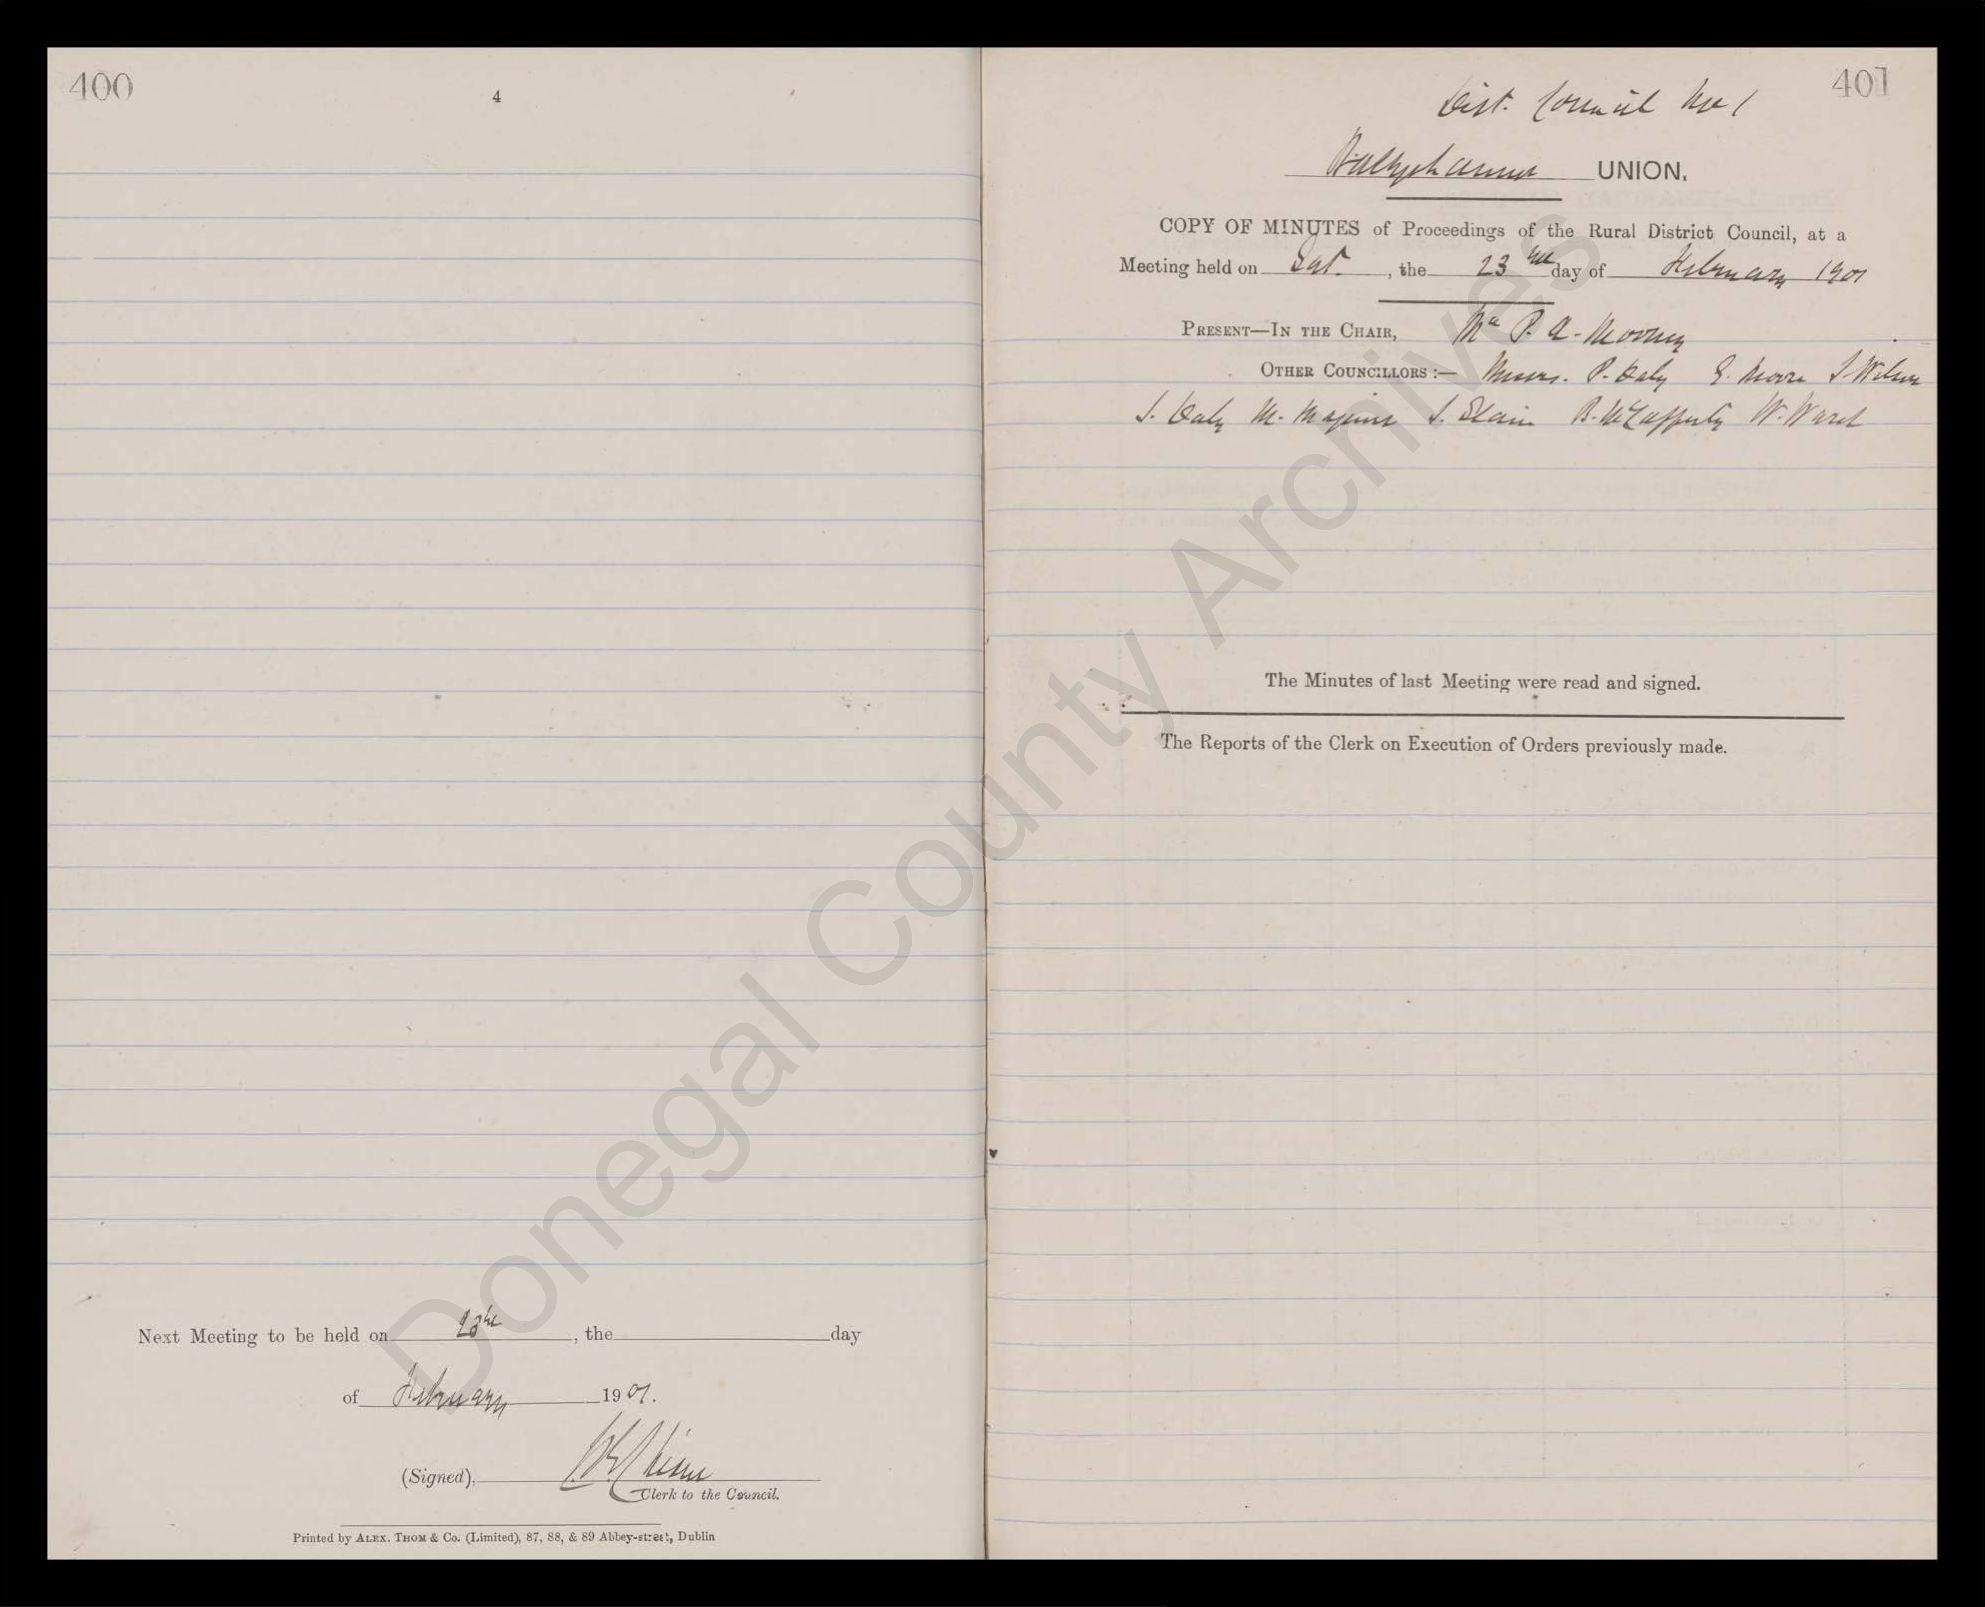 400
4
Next Meeting to be held on 23rd, the day
of February 1901.
(Signed),
Clerk to the Council.
Printed by ALEX. THOM & Co. (Limited), 87, 88, & 89 Abbey-street, Dublin
401
Dist. Council No 1
Ballyshannon UNION.
COPY OF MINUTES of Proceedings of the Rural District Council, at a
Meeting held on Sat., the 23rd day of February 1901
PRESENT—IN THE CHAIR, Mr P. A. Mooney
OTHER COUNCILLORS:— Messrs. P. Daly E. Moore J Wilson
J. Daly M. Maguire J. Slain B. McCafferty W. Ward
The Minutes of last Meeting were read and signed.
The Reports of the Clerk on Execution of Orders previously made.
Donegal County Archives